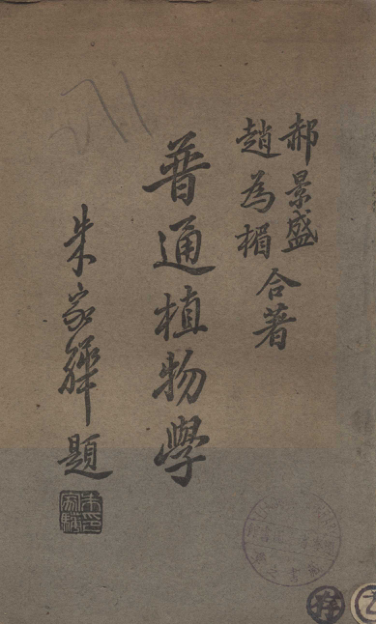 郝景盛
趙為楣
合著
普通植物學
朱家驊題
存